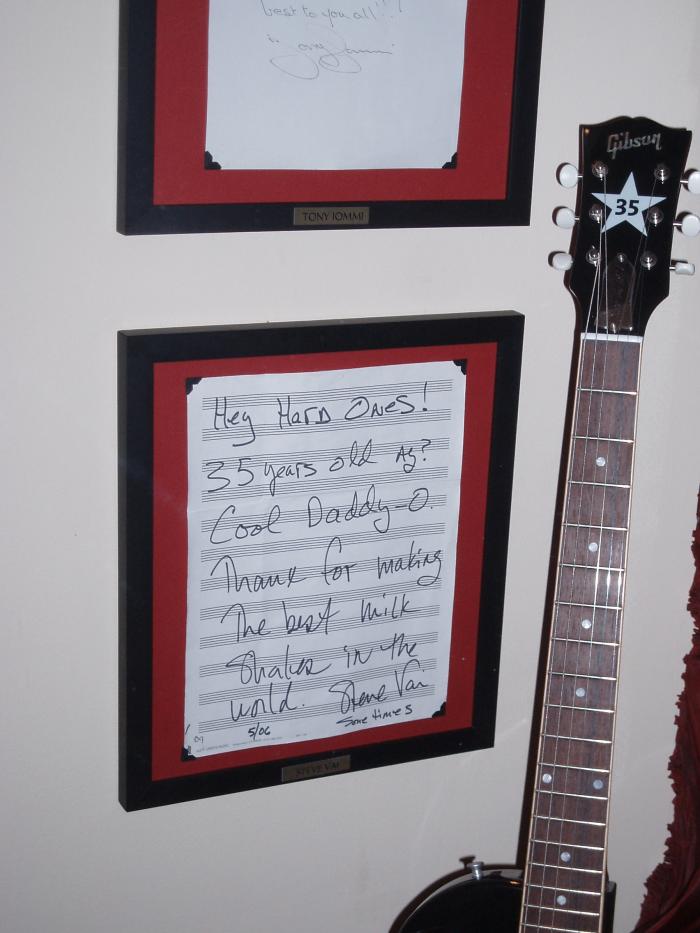 best to you all!!!
Tony Iommi
TONY IOMMI
Gibson
35
Hey Hard Ones!
35 years old Ay?
Cool Daddy-O.
Thank for making
The best milk
Shakes in the
world. Steve Vai
5/06 Some times
STEVE VAI